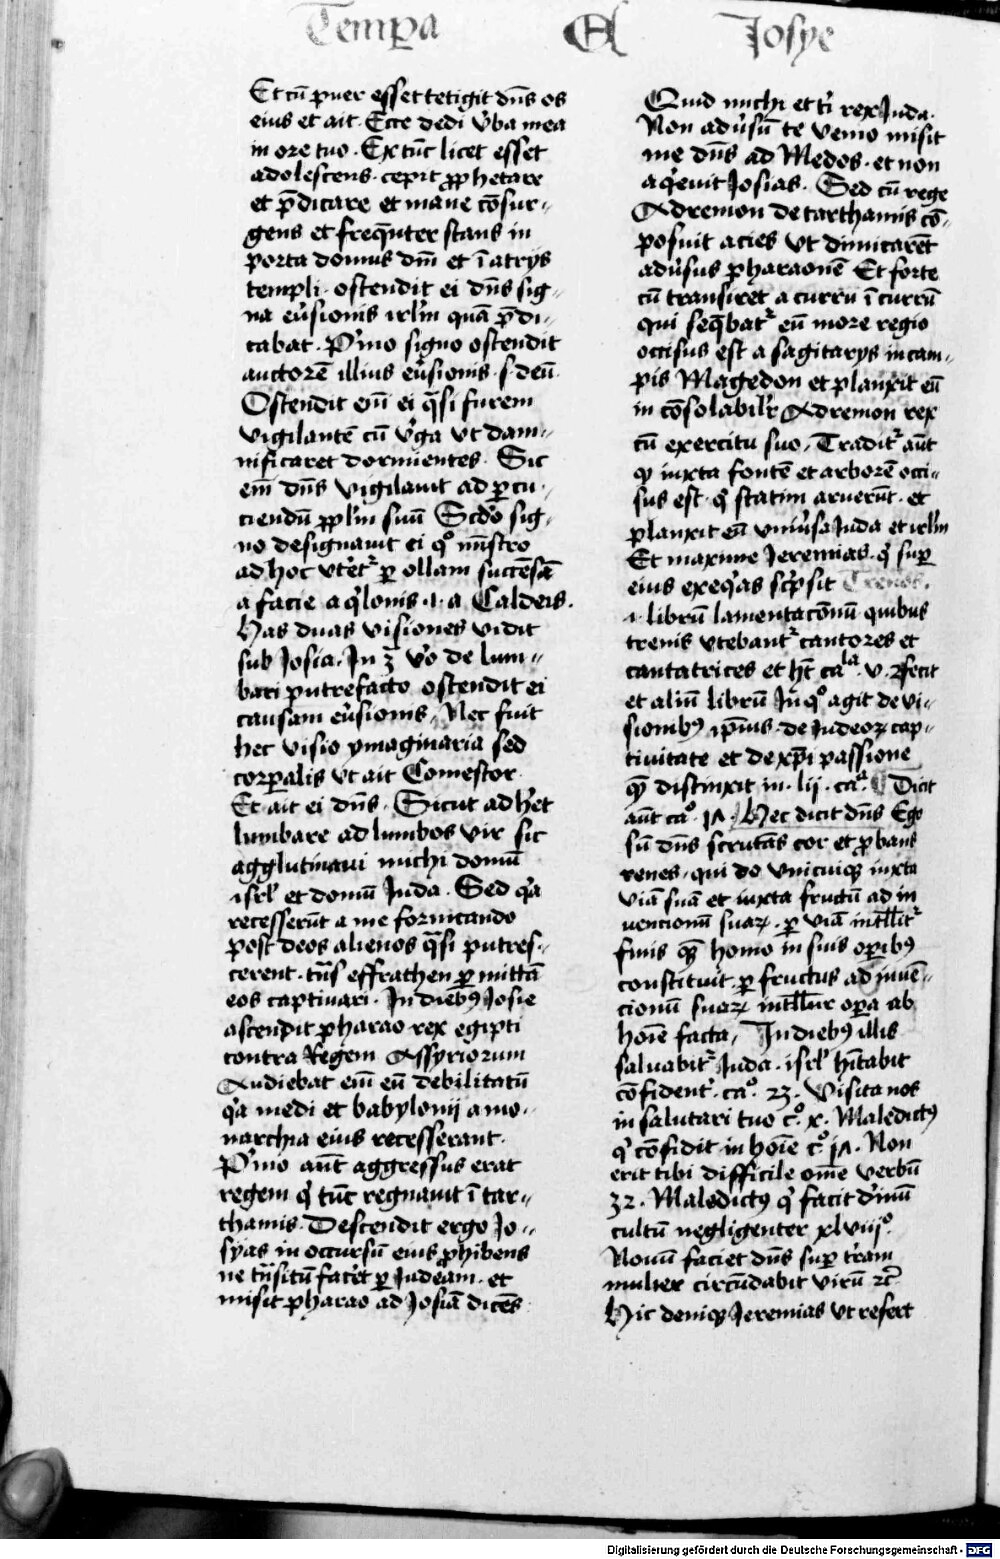 Tempa Et Josye
Et cū puer esset tetigit dn̄s os
eius et ait. Ecce dedi v̓ba mea
in ore tuo. Ex tūc licet esset
adolescens. cepit ꝓphetare
et p̄dicare et mane cōsur-
gens et freqn̄ter stans in
porta domus dn̄i et ī atrijs
templi. ostendit ei dn̄s sig-
na eu̓sionis irlm̄ quā p̄di-
cabat. Pͥmo signo ostendit
auctorē illius eu̓sionis. s. deū.
Ostendit em̄ ei qͣsi furem
vigilantē cū v̓ga vt dam-
nificaret dormientes. Sic
em̄ dn̄s vigilauit ad ꝑcu-
ciendū ppl̄m suū Scd̓o sig-
no designauit ei qͦ mīstro
ad hoc vtet̓ᷣ ꝑ ollam succēsā
a facie aqͥlonis .i. a Caldeis.
Has duas visiones vidit
sub Josia. In ꝫ vͦo de lum-
bari putrefacto ostendit ei
causam eu̓sionis, Nec fuit
hec visio ymaginaria sed
corꝑalis vt ait Comestor.
Et ait ei dn̄s. Sicut adh̓et
lumbare ad lumbos viri sic
agglutinaui michi domū
isrl̓ et domū Juda. Sed qͥa
recesserūt a me fornicando
post deos alienos qͣsi putres-
cerent. tn̄s effrathen ꝑmittā
eos captiuari. In diebꝰ Josie
ascendit pharao rex egipti
contra Regem Assyriorum
Audiebat em̄ eū debilitatū
qͥa medi et babylonij a mo-
narchia eius recesserant.
Pͥmo aūt aggressus erat
regem qͥ tūc regnauit ī tar-
thamis. Descendit ergo Jo-
syas in occursū eius ꝓhibens
ne tn̄sitū fac̓et ꝑ Judeam. et
misit pharao ad Josiā dicēs
Quid michi et ti rex Juda.
Non adu̓sū te venio misit
me dn̄s ad Medos. et non
aqͥeuit Josias. Sed cū rege
Adremon de tarthamis cō-
posuit acies vt dimicarēt
adu̓sus pharaonē Et forte
cū transiret a curru ī currū
qui seqb̄atᷣ eū more regio
occisus est a sagitarijs in cam-
pis Magedon et planxit eū
inconsolabilr̄ Adremon rex
cū exercitu suo, Traditᷣ aūt
ꝙ iuxta fontē et arborē occi-
sus est. qͥ statim aruerūt. et
planxit eū vniu̓sa Juda et irlm̄
Et maxime Jeremias. qͥ suꝑ
eius exeqͥas scͥpsit Trenos.
.i. librū lamentacōnū quibus
trenis vtebantᷣ cantores et
cantatrices et hꝫ caͣla v. ꝛ fecit
et aliū librū in qͦ agit de vi-
sionibꝰ ip̄ius. de Judeoꝝ cap-
tiuitate et de xp̄i passione
quē distinxit in. lij. caͣ. Dicit
aūt caͦ. 17. Hec dicit dn̄s Ego
sū dn̄s scrutās cor et ꝓbans
renes. qui do vnicuiqꝫ iuxta
viā suā et iuxta fructū ad in
uencionū suaꝝ. ꝑ viā intl̄litᷣ
finis quē homo in suis oꝑibꝰ
constituit. ꝑ fructus ad inuē-
cionū suaꝝ intl̄lr̄ oꝑa ab
hoīe facta, In diebꝰ illis
saluabitᷣ Juda. isrl̓ hītabit
cōfident̓. caͦ. 23. Visita nos
in salutari tuo cͦ. x. Maledictꝰ
qͥ cōfidit in hoīe cͦ 17. Non
erit tibi difficile om̄e verbū
32. Maledictꝰ qͥ facit diuinū
cultū negligenter xlviijͦ.
Nouū faciet dn̄s suꝑ tr̄am
mulier circūdabit virū ꝛc̄
Hic deniqꝫ Jeremias vt refert
Digitalisierung gefördert durch die Deutsche Forschungsgemeinschaft - DFG